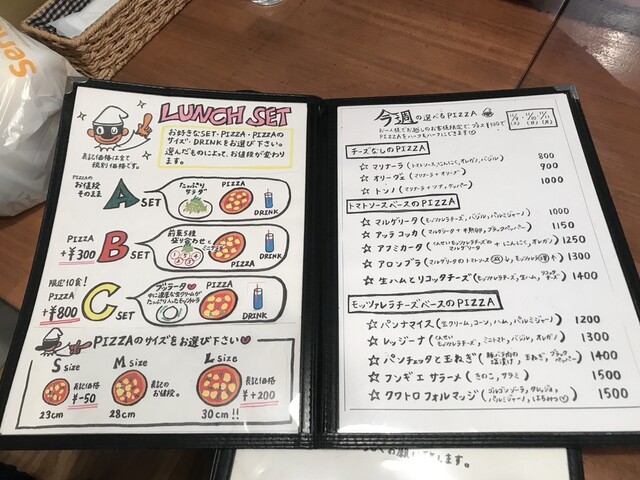 LUNCH SET
お好きなSET・PIZZA・PIZZAの
サイズ・DRINKをお選び下さい。
選んだものによって、お値段が変わり
ます。
表記価格は全て
税別価格です。
PIZZAの
お値段
そのまま
A SET
たっぷり
サラダ
PIZZA
DRINK
PIZZA
+¥300
B SET
前菜5種
盛り合わせと
PIZZA
DRINK
限定10食!
PIZZA
+¥800
C SET
ブッラータ
中に濃厚な生クリームが
たっぷり入ったモッツァレラ
PIZZA
DRINK
PIZZAのサイズをお選び下さい
S size
表記価格
¥-50
23cm
M size
表記の
お値段。
28cm
L size
表記価格
¥+200
30cm!!
今週の選べるPIZZA
チーズなしのPIZZA
☆ マリナーラ(トマトソース,にんにく,オレガノ,バジル) 800
☆ オリーヴェ(マリナーラ+オリーブ) 900
☆ トンノ(マリナーラ+ツナ,ケッパー) 1000
トマトソースベースのPIZZA
☆ マルゲリータ(モッツァレラチーズ,バジル,パルミジャーノ) 1000
☆ アッラコッカ(マルゲリータ+半熟卵,ブラックペッパー) 1150
☆ アフミカータ(くんせいモッツァレラチーズのマルゲリータ+にんにく,オレガノ) 1250
☆ アロンブラ(マルゲリータのトマトソース 1300
☆ 生ハムとリコッタチーズ(モッツァレラチーズ,生ハム,リコッタチーズ) 1400
モッツァレラチーズベースのPIZZA
☆ パンナマイス(生クリーム,コーン,ハム,パルミジャーノ) 1200
☆ レッジーナ(くんせいモッツァレラチーズ,ミニトマト,バジル,オレガノ) 1300
☆ パンチェッタと玉ねぎ(豚バラ肉の塩漬け,玉ねぎ,ブラックペッパー) 1400
☆ フンギエ サラーメ(きのこ,サラミ) 1500
☆ クワトロ フォルマッジ(ゴルゴンゾーラ,タレッジョ,パルミジャーノ,はちみつ) 1500
お願い致します。